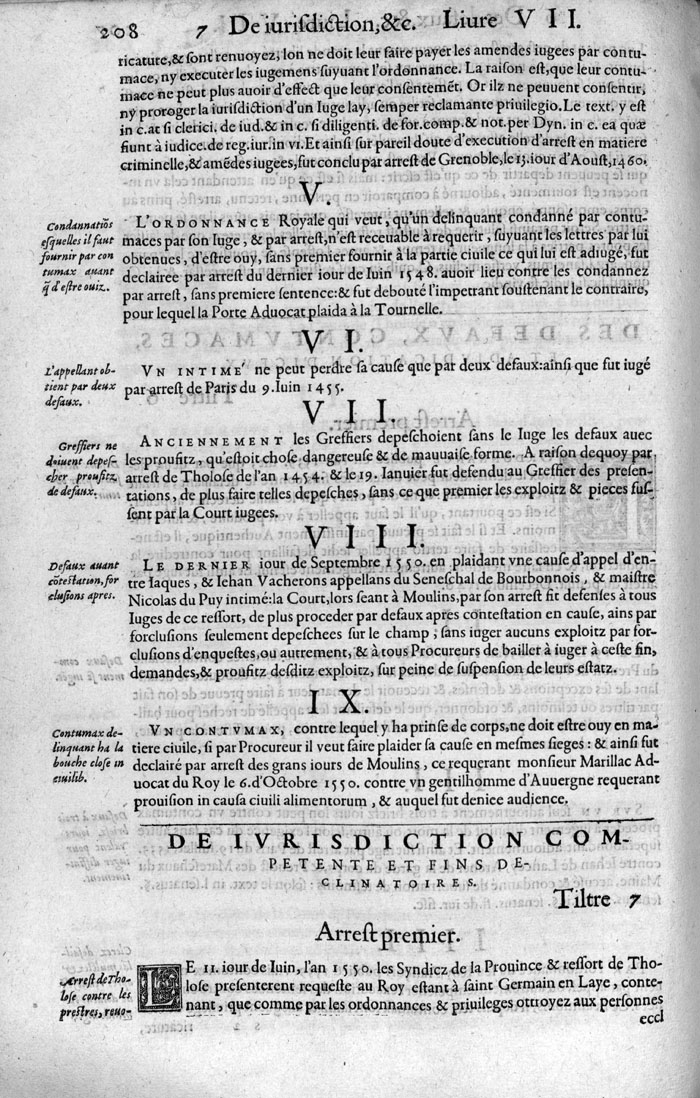 208 7 De iurisdiction, &c. Liure VII.
ricature, & sont renuoyez, lon ne doit leur faire payer les amendes iugees par contu-
mace, ny executer les iugemens suyuant l'ordonnance. La raison est, que leur contu-
mace ne peut plus auoir d'effect que leur consentemēt. Or ilz ne peuuent consentir,
ny proroger la iurisdiction d'un Iuge lay, semper reclamante priuilegio. Le text. y est
in c. at si clerici. de iud. & in c. si diligenti. de for. comp. & not. per Dyn. in c. ea quæ
fiunt à iudice. de reg. iur. in vi. Et ainsi sur pareil doute d'execution d'arrest en matiere
criminelle, & amēdes iugees, fut conclu par arrest de Grenoble, le 13. iour d'Aoust, 1460.
V.
Condannatiōs
esquelles il faut
fournir par con
tumax auant
q̄ d'estre ouiz.
L'ORDONNANCE Royale qui veut, qu'un delinquant condanné par contu-
maces par son Iuge, & par arrest, n'est receuable à requerir, suyuant les lettres par lui
obtenues, d'estre ouy, sans premier fournir à la partie ciuile ce qui lui est adiugé, fut
declairee par arrest du dernier iour de Iuin 1548. auoir lieu contre les condannez
par arrest, sans premiere sentence: & fut debouté l'impetrant soustenant le contraire,
pour lequel la Porte Aduocat plaida à la Tournelle.
VI.
L'appellant ob-
tient par deux
defaux.
VN INTIMÉ ne peut perdre sa cause que par deux defaux: ainsi que fut iugé
par arrest de Paris du 9. Iuin 1455.
VII.
Greffiers ne
doiuent depes-
cher proufitz
de defaux.
ANCIENNEMENT les Greffiers depeschoient sans le Iuge les defaux auec
les proufitz, qu'estoit chose dangereuse & de mauuaise forme. A raison dequoy par
arrest de Tholose de l'an 1454. & le 19. Ianuier fut defendu au Greffier des presen-
tations, de plus faire telles depesches, sans ce que premier les exploitz & pieces fus-
sent par la Court iugees.
VIII.
Defaux auant
cōtestation, for
clusions apres.
LE DERNIER iour de Septembre 1550. en plaidant vne cause d'appel d'en-
tre Iaques, & Iehan Vacherons appellans du Seneschal de Bourbonnois, & maistre
Nicolas du Puy intimé: la Court, lors seant à Moulins, par son arrest fit defenses à tous
Iuges de ce ressort, de plus proceder par defaux apres contestation en cause, ains par
forclusions seulement depeschees sur le champ; sans iuger aucuns exploitz par for-
clusions d'enquestes, ou autrement, & à tous Procureurs de bailler à iuger à ceste fin,
demandes, & proufitz desditz exploitz, sur peine de suspension de leurs estatz.
IX.
Contumax de-
linquant ha la
bouche close in
ciuilib.
VN CONTVMAX, contre lequel y ha prinse de corps, ne doit estre ouy en ma-
tiere ciuile, si par Procureur il veut faire plaider sa cause en mesmes sieges: & ainsi fut
declairé par arrest des grans iours de Moulins, ce requerant monsieur Marillac Ad-
uocat du Roy le 6. d'Octobre 1550. contre vn gentilhomme d'Auuergne requerant
prouision in causa ciuili alimentorum, & auquel fut deniee audience.
DE IVRISDICTION COM-
PETENTE ET FINS DE-
CLINATOIRES.
Tiltre 7
Arrest premier.
Arrest de Tho-
lose contre les
prestres, reuo-
LE 11. iour de Iuin, l'an 1550. les Syndicz de la Prouince & ressort de Tho-
lose presenterent requeste au Roy estant à saint Germain en Laye, conte-
nant, que comme par les ordonnances & priuileges ottroyez aux personnes
eccl